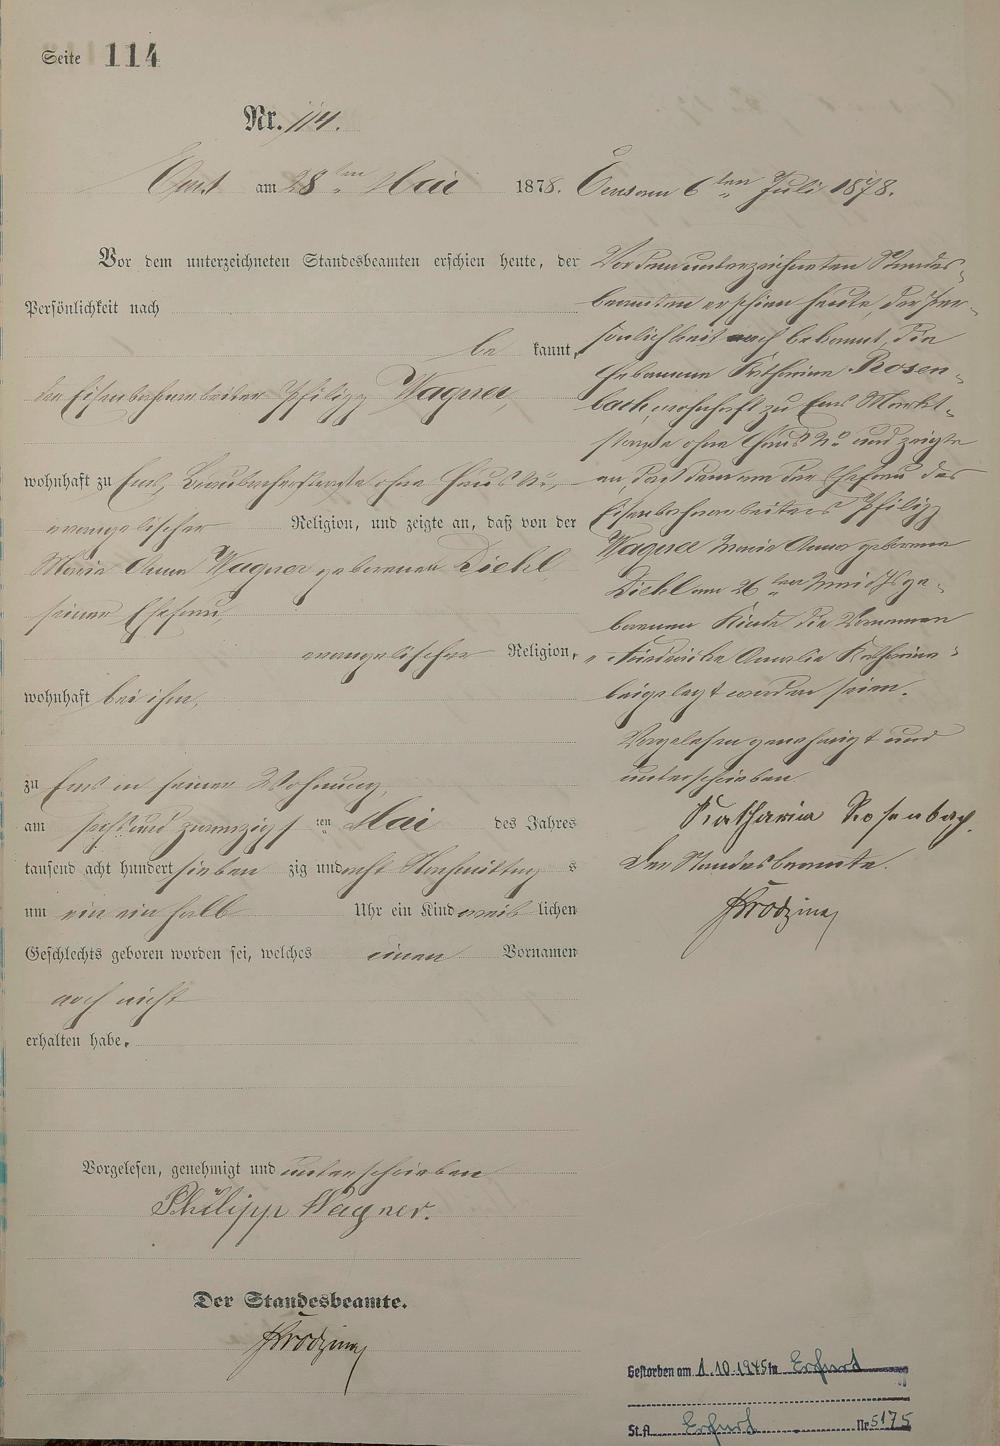 Seite 114
Nr. 114.
Ems am 28ten Mai 1878.
Vor dem unterzeichneten Standesbeamten erschien heute, der
Persönlichkeit nach
be kannt,
der Eisenbahnarbeiter Philipp Wagner,
wohnhaft zu Ems, ohne Haus No,
evangelischer Religion, und zeigte an, daß von der
Maria Anna Wagner geborenen Diehl,
seiner Ehefrau,
evangelischer Religion,
wohnhaft bei ihm,
zu Ems in seiner Wohnung,
am sechsundzwanzigs ten Mai des Jahres
tausend acht hundert sieben zig und acht Nachmittag s
um ein ein halb Uhr ein Kind weib lichen
Geschlechts geboren worden sei, welches einen Vornamen
noch nicht
erhalten habe.
Vorgelesen, genehmigt und unterschrieben
Philipp Wagner.
Der Standesbeamte.
Ems am 6ten Juli 1878.
Vor dem unterzeichneten Standes-
beamten erschien heute, der Per-
sönlichkeit nach bekannt, die
Hebamme Katharina Rosen-
bach, wohnhaft zu Ems Markt-
straße ohne Haus No und zeigte
an, daß dem von der Ehefrau des
Eisenbahnarbeiters Philipp
Wagner Maria Anna geborene
Diehl am 26ten Mai ge-
borenen Kinde die Vornamen
"Friederika Amalie Katharina"
beigelegt worden seien.
Vorgelesen genehmigt und
unterschrieben.
Katharina Rosenbach.
Der Standesbeamte.
Gestorben am 1.10.1945 in Erfurt
St.A. Erfurt Nr 5175